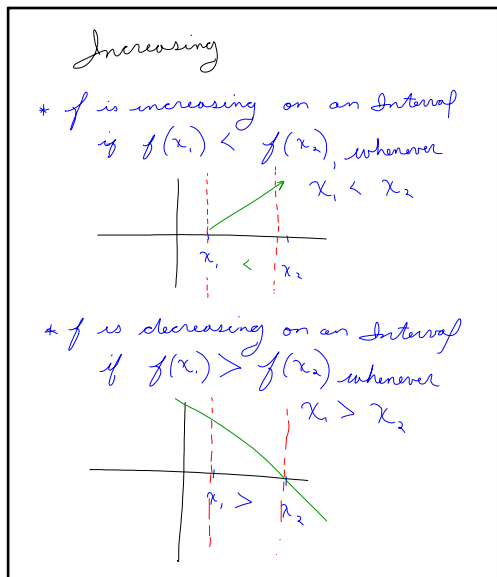 Increasing
* f is increasing on an Interval
if f(x₁) < f(x₂), whenever
x₁ < x₂
x₁ < x₂
* f is decreasing on an Interval
if f(x₁) > f(x₂) whenever
x₁ > x₂
x₁ > x₂